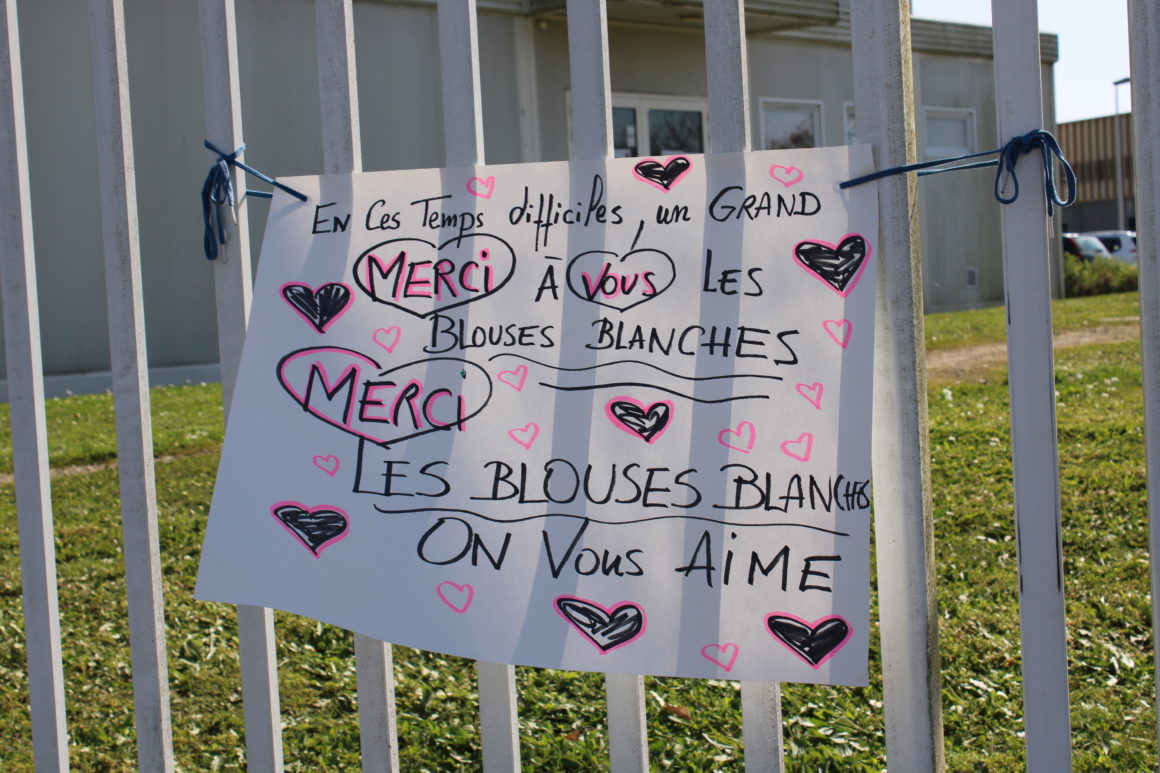 En Ces Temps difficiles, un GRAND
MERCi À vous LES
BLOUSES BLANCHES
MERCi
LES BLOUSES BLANCHES
ON Vous AiME